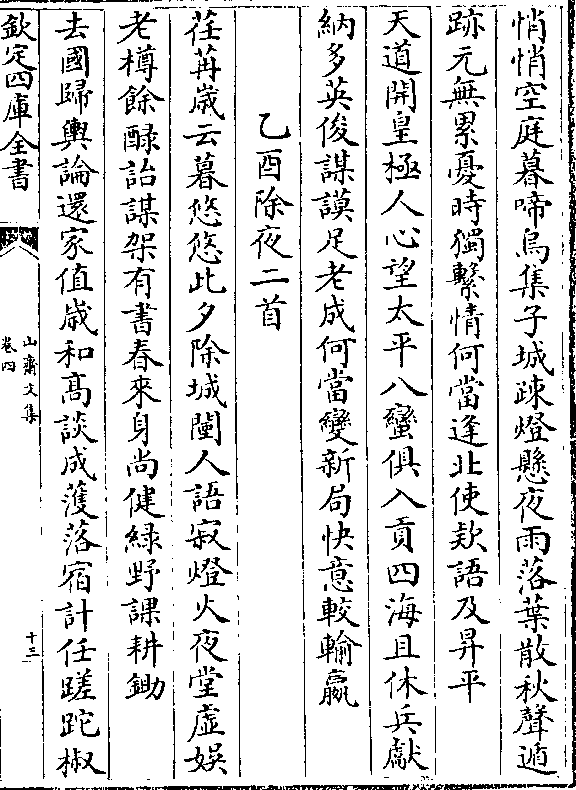 悄悄空庭暮啼烏集子城踈燈懸夜雨落葉散秋聲遁
跡元無累憂時獨繫情何當逢北使欵語及昇平
天道開皇極人心望太平八蠻俱入貢四海且休兵獻
納多英俊謀謨足老成何當變新局快意較輸贏
乙酉除夜二首
荏苒嵗云暮悠悠此夕除城闉人語寂燈火夜堂虛娛
老樽餘醁詒謀架有書春來身尚健綠野課耕鋤
去國歸輿論還家值嵗和髙談成濩落宿計任蹉跎椒
欽定四庫全書
山齋文集
卷四
十三